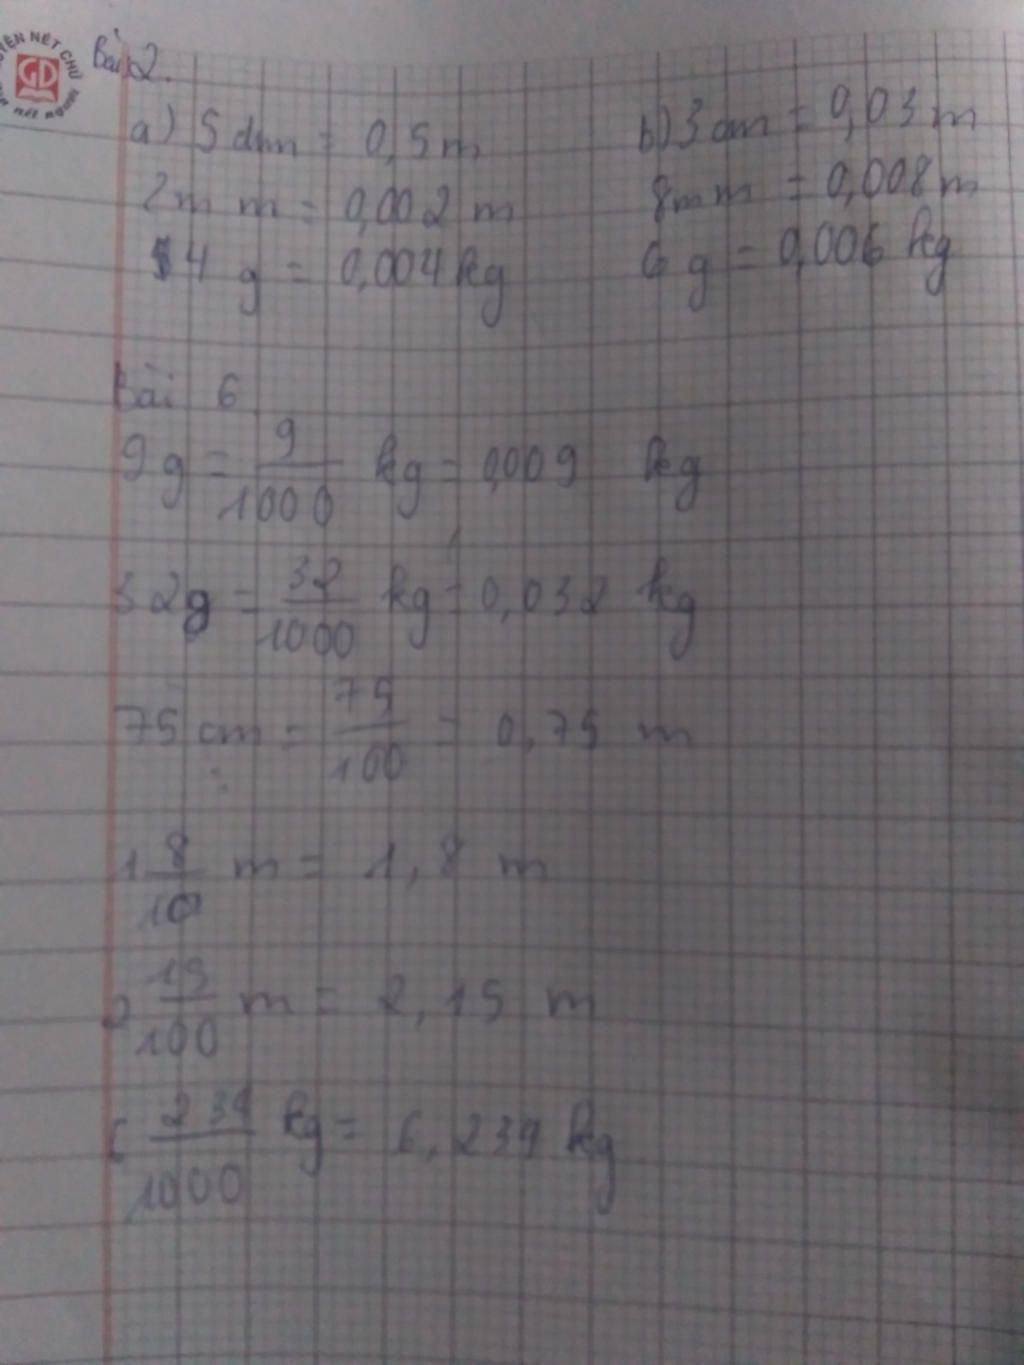 Bài 2.
a) 5 dm = 0,5 m b) 3 cm = 0,03 m
2 m m = 0,002 m 8 m m = 0,008 m
4 g = 0,004 kg 6 g = 0,006 kg
Bài 6
9 g = 9/1000 kg = 0,009 kg
32g = 32/1000 kg = 0,032 kg
75 cm = 75/100 = 0,75 m
1 8/10 m = 1,8 m
2 15/100 m = 2,15 m
6 239/1000 kg = 6,239 kg
GD